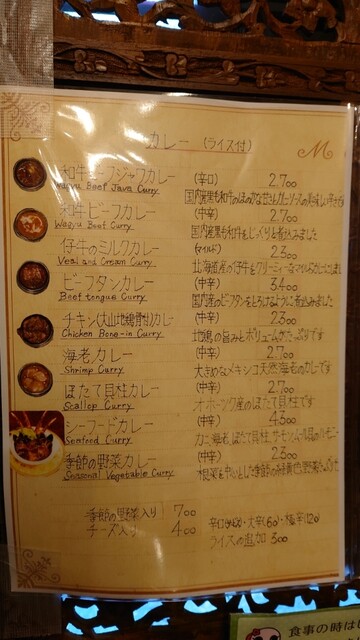 カレー (ライス付)
和牛ビーフジャワカレー (辛口) 2.700
Wagyu Beef Java Curry
和牛ビーフカレー (中辛) 2.700
Wagyu Beef Curry
国内産黒毛和牛をじっくり煮込みました
仔牛のミルクカレー (マイルド) 2.300
Veal and Cream Curry
北海道産の仔牛をクリーミーな
ビーフタンカレー (中辛) 3.400
Beef tongue Curry
国内産のビーフタンをとろけるように煮込みました
チキン(大山地鶏骨付)カレー (中辛) 2.300
Chicken Bone-in Curry
地鶏の旨みとボリュームがたっぷりです
海老カレー (中辛) 2.700
Shrimp Curry
大きめなメキシコ天然海老のカレーです
ほたて貝柱カレー (中辛) 2.700
Scallop Curry
オホーツク産のほたて貝柱です
シーフードカレー (中辛) 4.300
Seafood Curry
カニ、海老、ほたて貝柱、サーモン
季節の野菜カレー (中辛) 2.300
Seasonal Vegetable Curry
根菜を中心とした季節の
季節の野菜入り 700
チーズ入り 400
ライスの追加 300
食事の時は